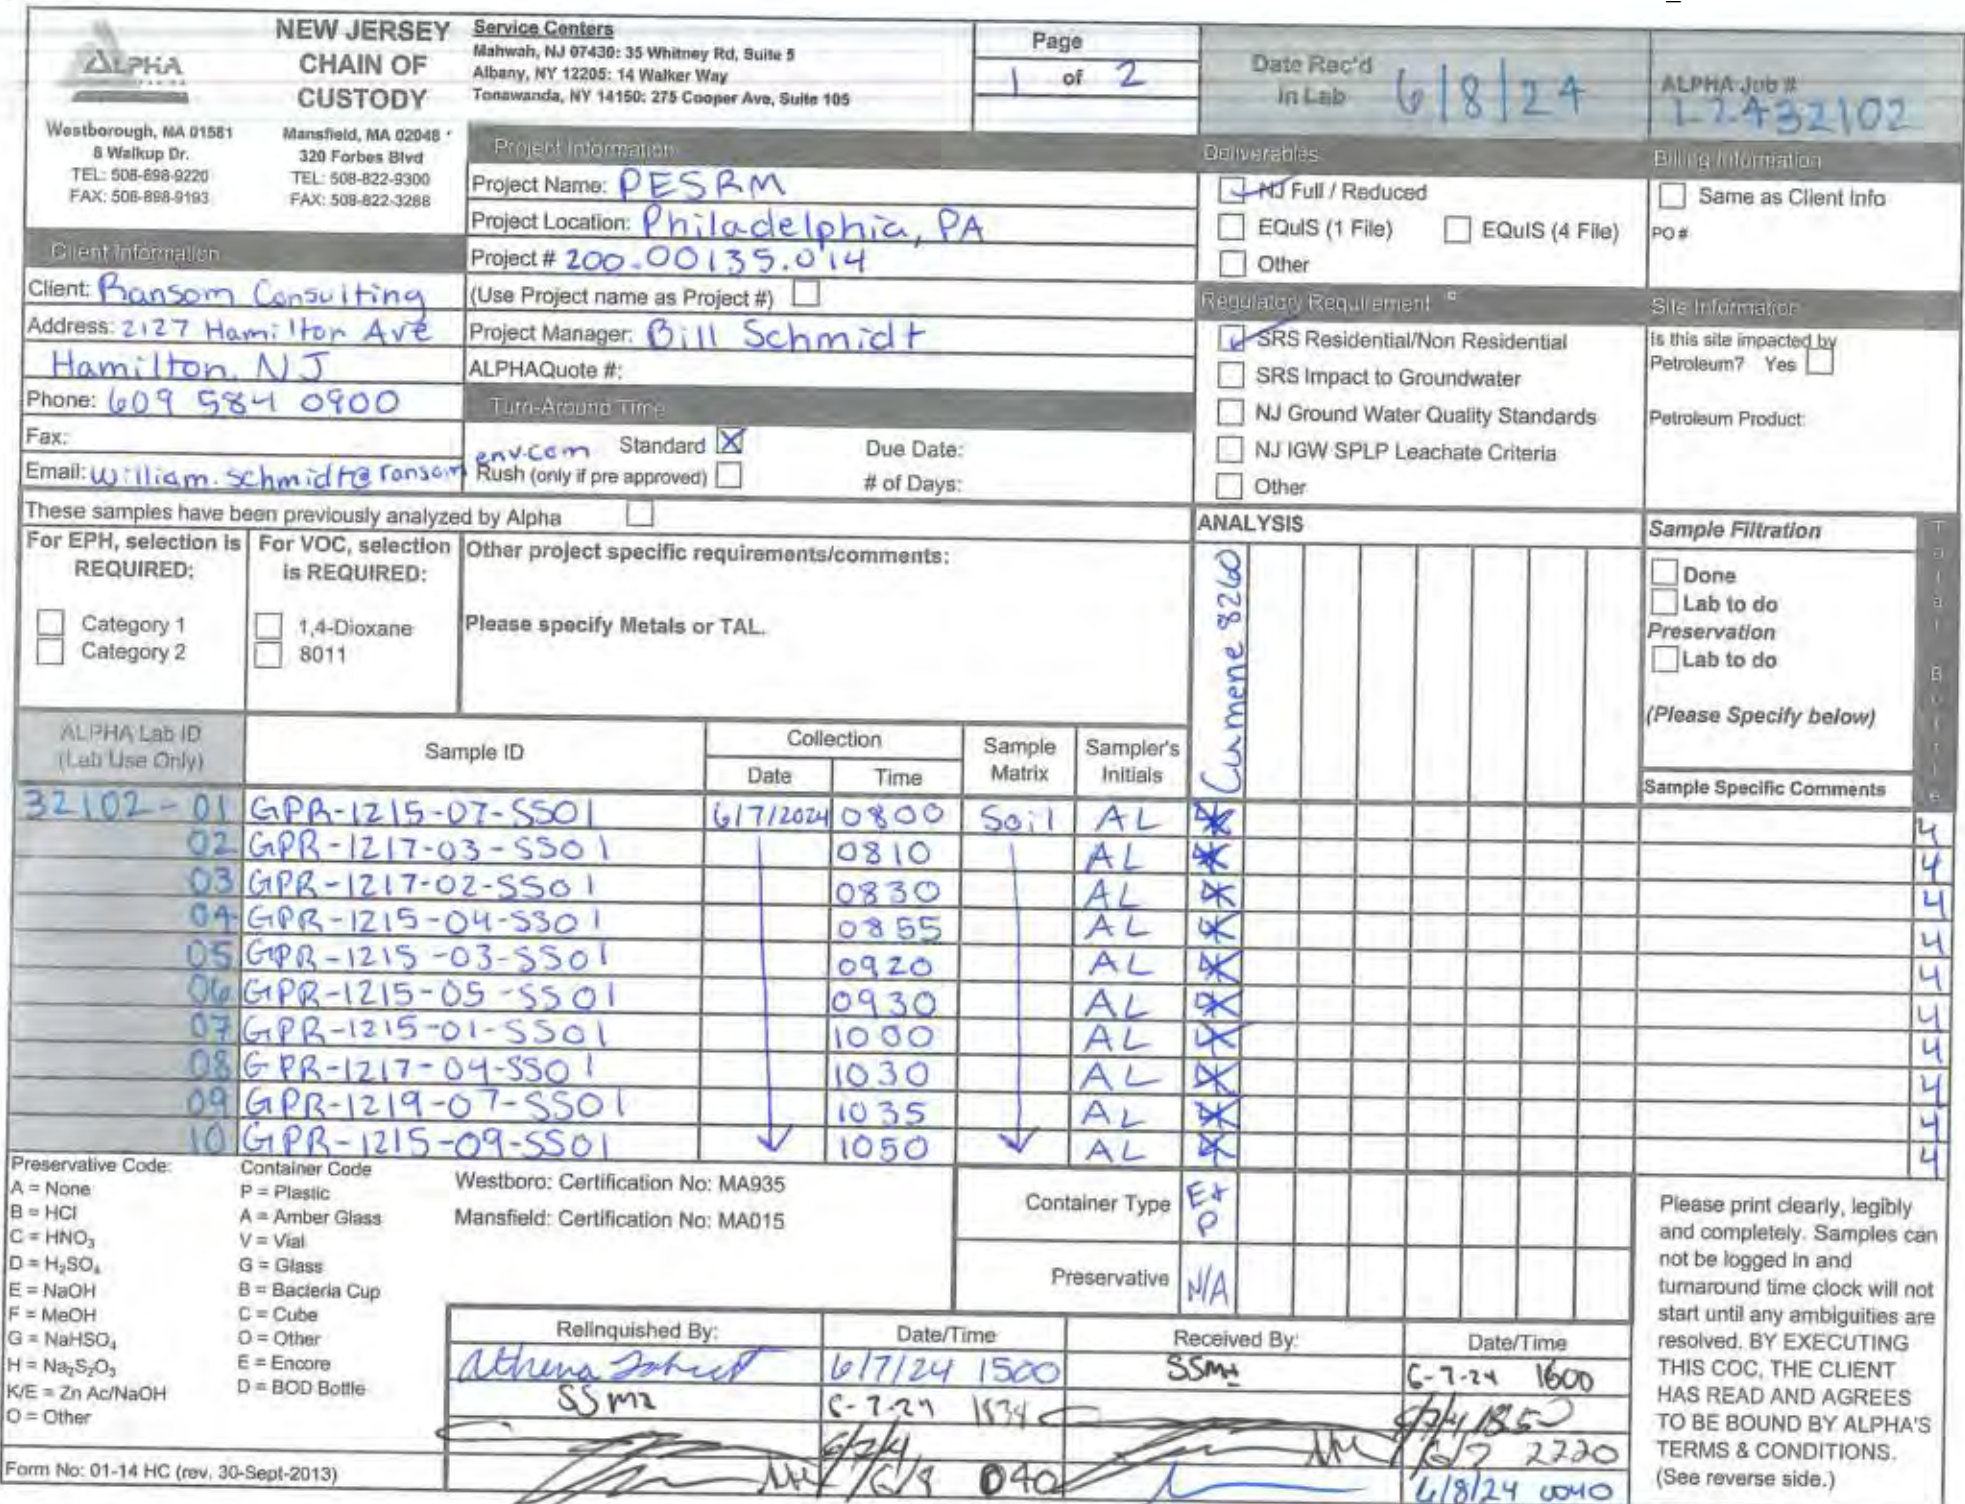 ALPHA
NEW JERSEY
CHAIN OF
CUSTODY
Westborough, MA 01581
8 Walkup Dr.
TEL: 508-898-9220
FAX: 508-898-9193
Mansfield, MA 02048
320 Forbes Blvd
TEL: 508-822-9300
FAX: 508-822-3288
Service Centers
Mahwah, NJ 07430: 35 Whitney Rd, Suite 5
Albany, NY 12205: 14 Walker Way
Tonawanda, NY 14150: 275 Cooper Ave, Suite 105
Page
1 of 2
Date Rec'd
in Lab 6/8/24
ALPHA Job #
L2432102
Client Information
Client: Ransom Consulting
Address: 2127 Hamilton Ave
Hamilton, NJ
Phone: 609 584 0900
Fax:
Email: william.schmidt@ransom
env.com
Project Information
Project Name: PESRM
Project Location: Philadelphia, PA
Project # 200.00135.014
(Use Project name as Project #)
Project Manager: Bill Schmidt
ALPHAQuote #:
Turn-Around Time
Standard X Due Date:
Rush (only if pre approved) # of Days:
Deliverables
NJ Full / Reduced
EQuIS (1 File) EQuIS (4 File)
Other
Regulatory Requirement
SRS Residential/Non Residential
SRS Impact to Groundwater
NJ Ground Water Quality Standards
NJ IGW SPLP Leachate Criteria
Other
Billing Information
Same as Client Info
PO #
Site Information
Is this site impacted by
Petroleum? Yes
Petroleum Product:
These samples have been previously analyzed by Alpha
For EPH, selection is
REQUIRED:
Category 1
Category 2
For VOC, selection
is REQUIRED:
1,4-Dioxane
8011
Other project specific requirements/comments:
Please specify Metals or TAL.
ANALYSIS
Cumene 8260
Sample Filtration
Done
Lab to do
Preservation
Lab to do
(Please Specify below)
Sample Specific Comments
Total Bottle
ALPHA Lab ID
(Lab Use Only)
Sample ID
Collection
Date Time
Sample
Matrix
Sampler's
Initials
32102-01 GPR-1215-07-SS01 6/7/2024 0800 Soil AL X 4
02 GPR-1217-03-SS01 0810 AL X 4
03 GPR-1217-02-SS01 0830 AL X 4
04 GPR-1215-04-SS01 0855 AL X 4
05 GPR-1215-03-SS01 0920 AL X 4
06 GPR-1215-05-SS01 0930 AL X 4
07 GPR-1215-01-SS01 1000 AL X 4
08 GPR-1217-04-SS01 1030 AL X 4
09 GPR-1219-07-SS01 1035 AL X 4
10 GPR-1215-09-SS01 1050 AL X 4
Preservative Code:
A = None
B = HCl
C = HNO3
D = H2SO4
E = NaOH
F = MeOH
G = NaHSO4
H = Na2S2O3
K/E = Zn Ac/NaOH
O = Other
Container Code
P = Plastic
A = Amber Glass
V = Vial
G = Glass
B = Bacteria Cup
C = Cube
O = Other
E = Encore
D = BOD Bottle
Westboro: Certification No: MA935
Mansfield: Certification No: MA015
Container Type E+
P
Preservative N/A
Relinquished By: Date/Time Received By: Date/Time
Athena 6/7/24 1500 6-7-24 1600
6-7-24 1834
6/7 2220
6/8
6/8/24 0040
Please print clearly, legibly
and completely. Samples can
not be logged in and
turnaround time clock will not
start until any ambiguities are
resolved. BY EXECUTING
THIS COC, THE CLIENT
HAS READ AND AGREES
TO BE BOUND BY ALPHA'S
TERMS & CONDITIONS.
(See reverse side.)
Form No: 01-14 HC (rev. 30-Sept-2013)